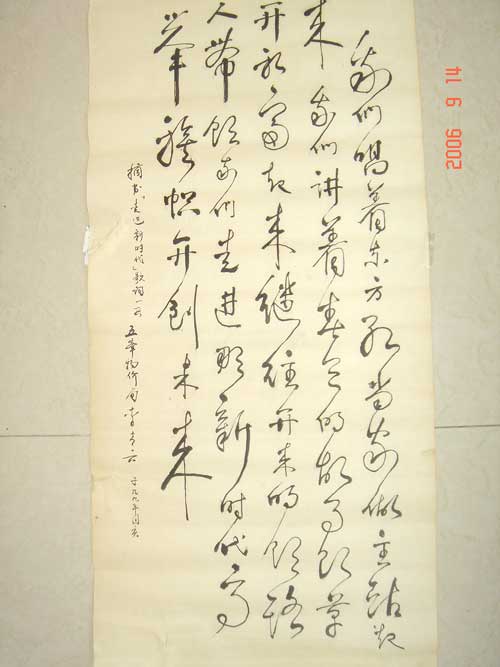 我们唱着东方红当家做主站起
来我们讲着春天的故事改革
开放富起来继往开来的领路
人带领我们走进那新时代高
举旗帜开创未来
走进新时代歌词一 五华物价局李 于九九年国庆
2006 6 14